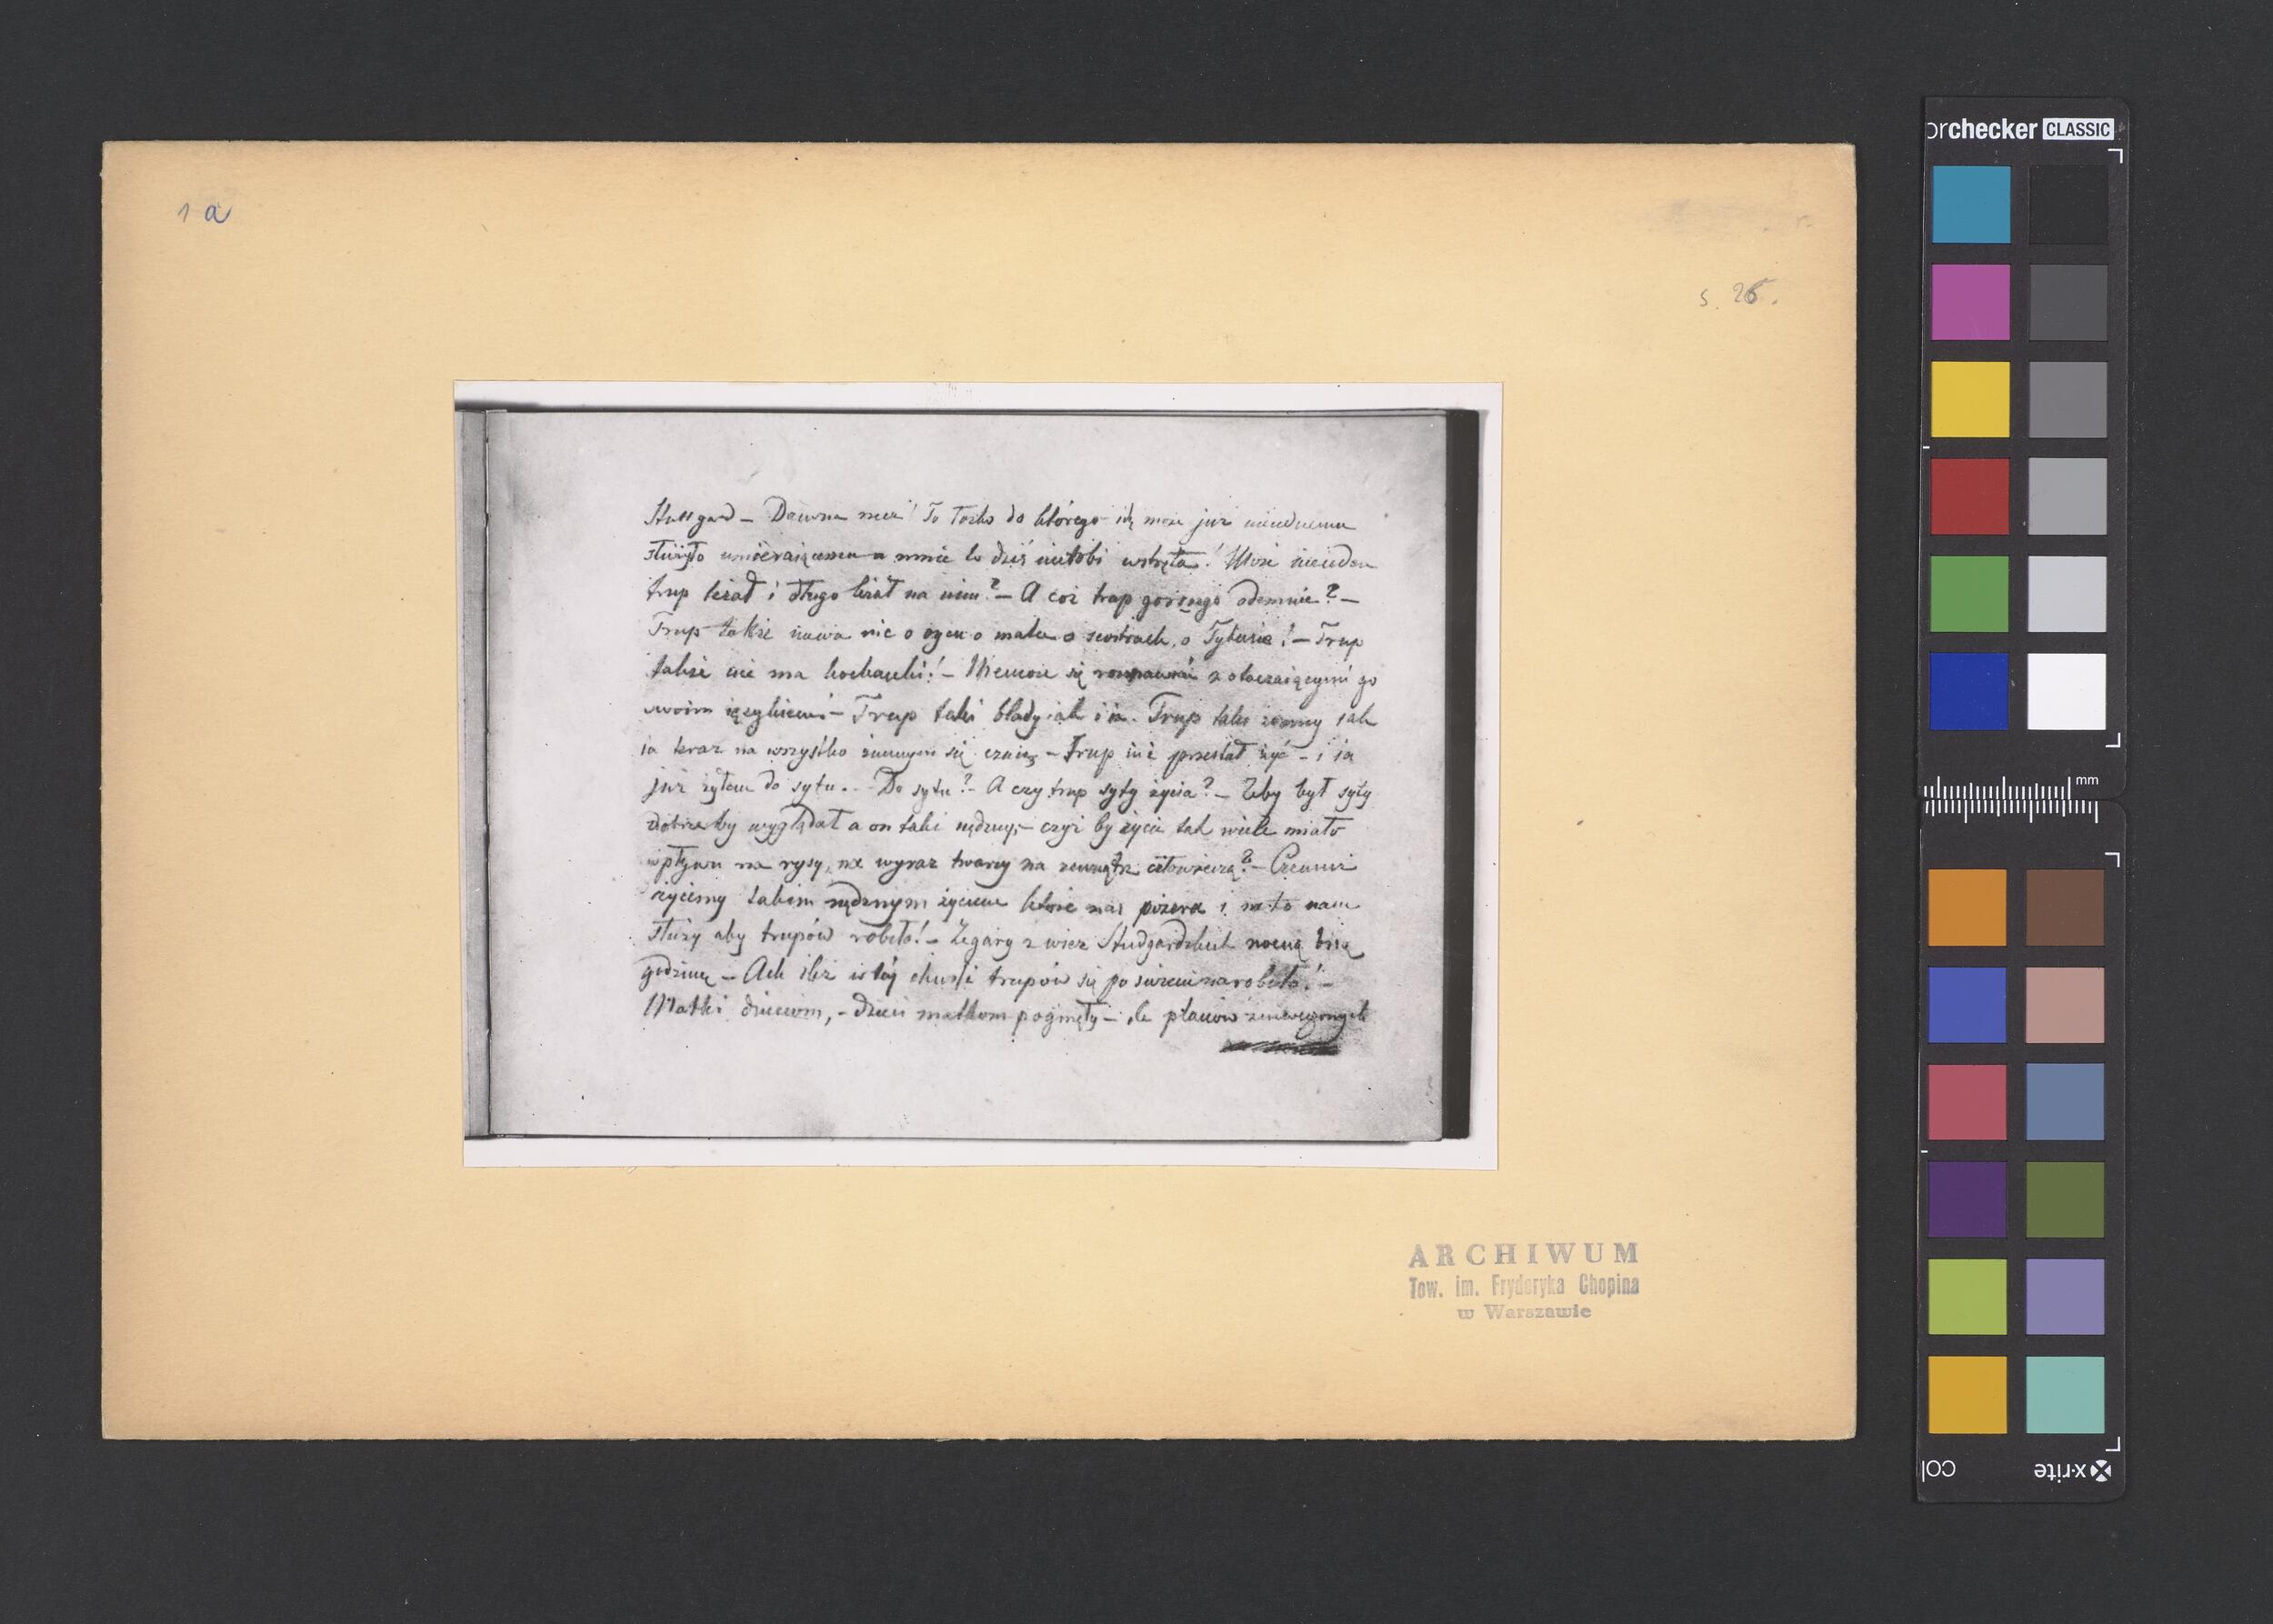 1 a
s. 26.
Stuttgard — Dziwna rzecz! To Łożko do którego idę może już niejednemu
służyło umieraiącemu a mnie to dziś nierobi wstrętu! Może niejeden
trup leżał i długo leżał na niem? — A coż trup gorszego odemnie? —
Trup także niewie nic o oycu o matce o siostrach, o Tytusie! — Trup
także nie ma kochanki! — Niemoże się rozmawiać z otaczaiącymi go
swoim ięzykiem! — Trup taki blady iak i ia. Trup taki zimny iak
ia teraz na wszystko zimnym się czuię — Trup iuż przestał żyć — i ia
już żyłem do sytu.. — Do sytu? — A czy trup syty życia? — Żeby był syty
dobrze by wyglądał a on taki nędzny, — czyż by życie tak wiele miało
wpływu na rysy, na wyraz twarzy na zewnątrz człowieka? — Czemuż
żyiemy takim nędznym życiem które nas pożera i na to nam
służy aby trupów robiło! — Zegary z wież Studgardzkich nocną biią
godzinę — Ach iluż w tej chwili trupów się po świecie narobiło! —
Matki dzieciom, — dzieci matkom poginęły — ile planów zniweczonych
ARCHIWUM
Tow. im. Fryderyka Chopina
w Warszawie
orchecker CLASSIC
mm
x-rite
col